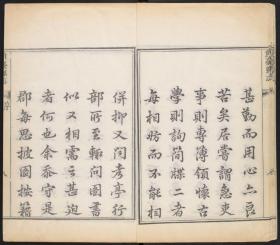 甚勤而用心亦良
苦矣居嘗謂急吏
事則專簿領懷古
學則詢簡牒二者
每相妨而不能相
併抑又聞考亭行
部所至輙問圖書
似又相需之甚迫
者何也余忝守是
郡每思披圖按籍